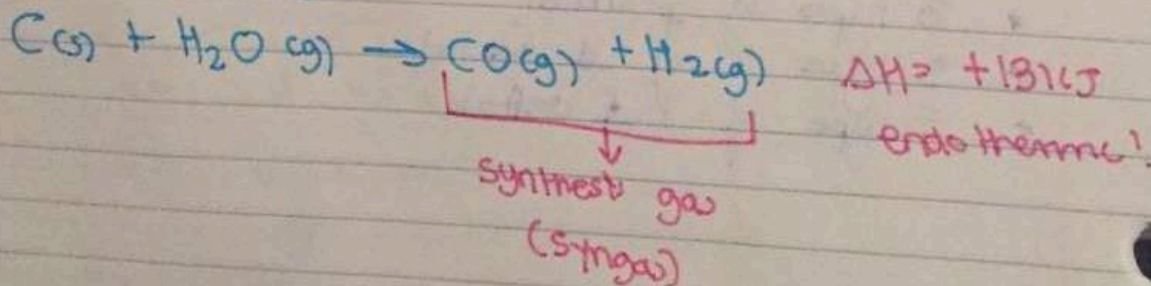 C(s) + H₂O (g) → CO(g) + H₂(g) ΔH= +131kJ
endothermic
synthesis gas
(syngas)